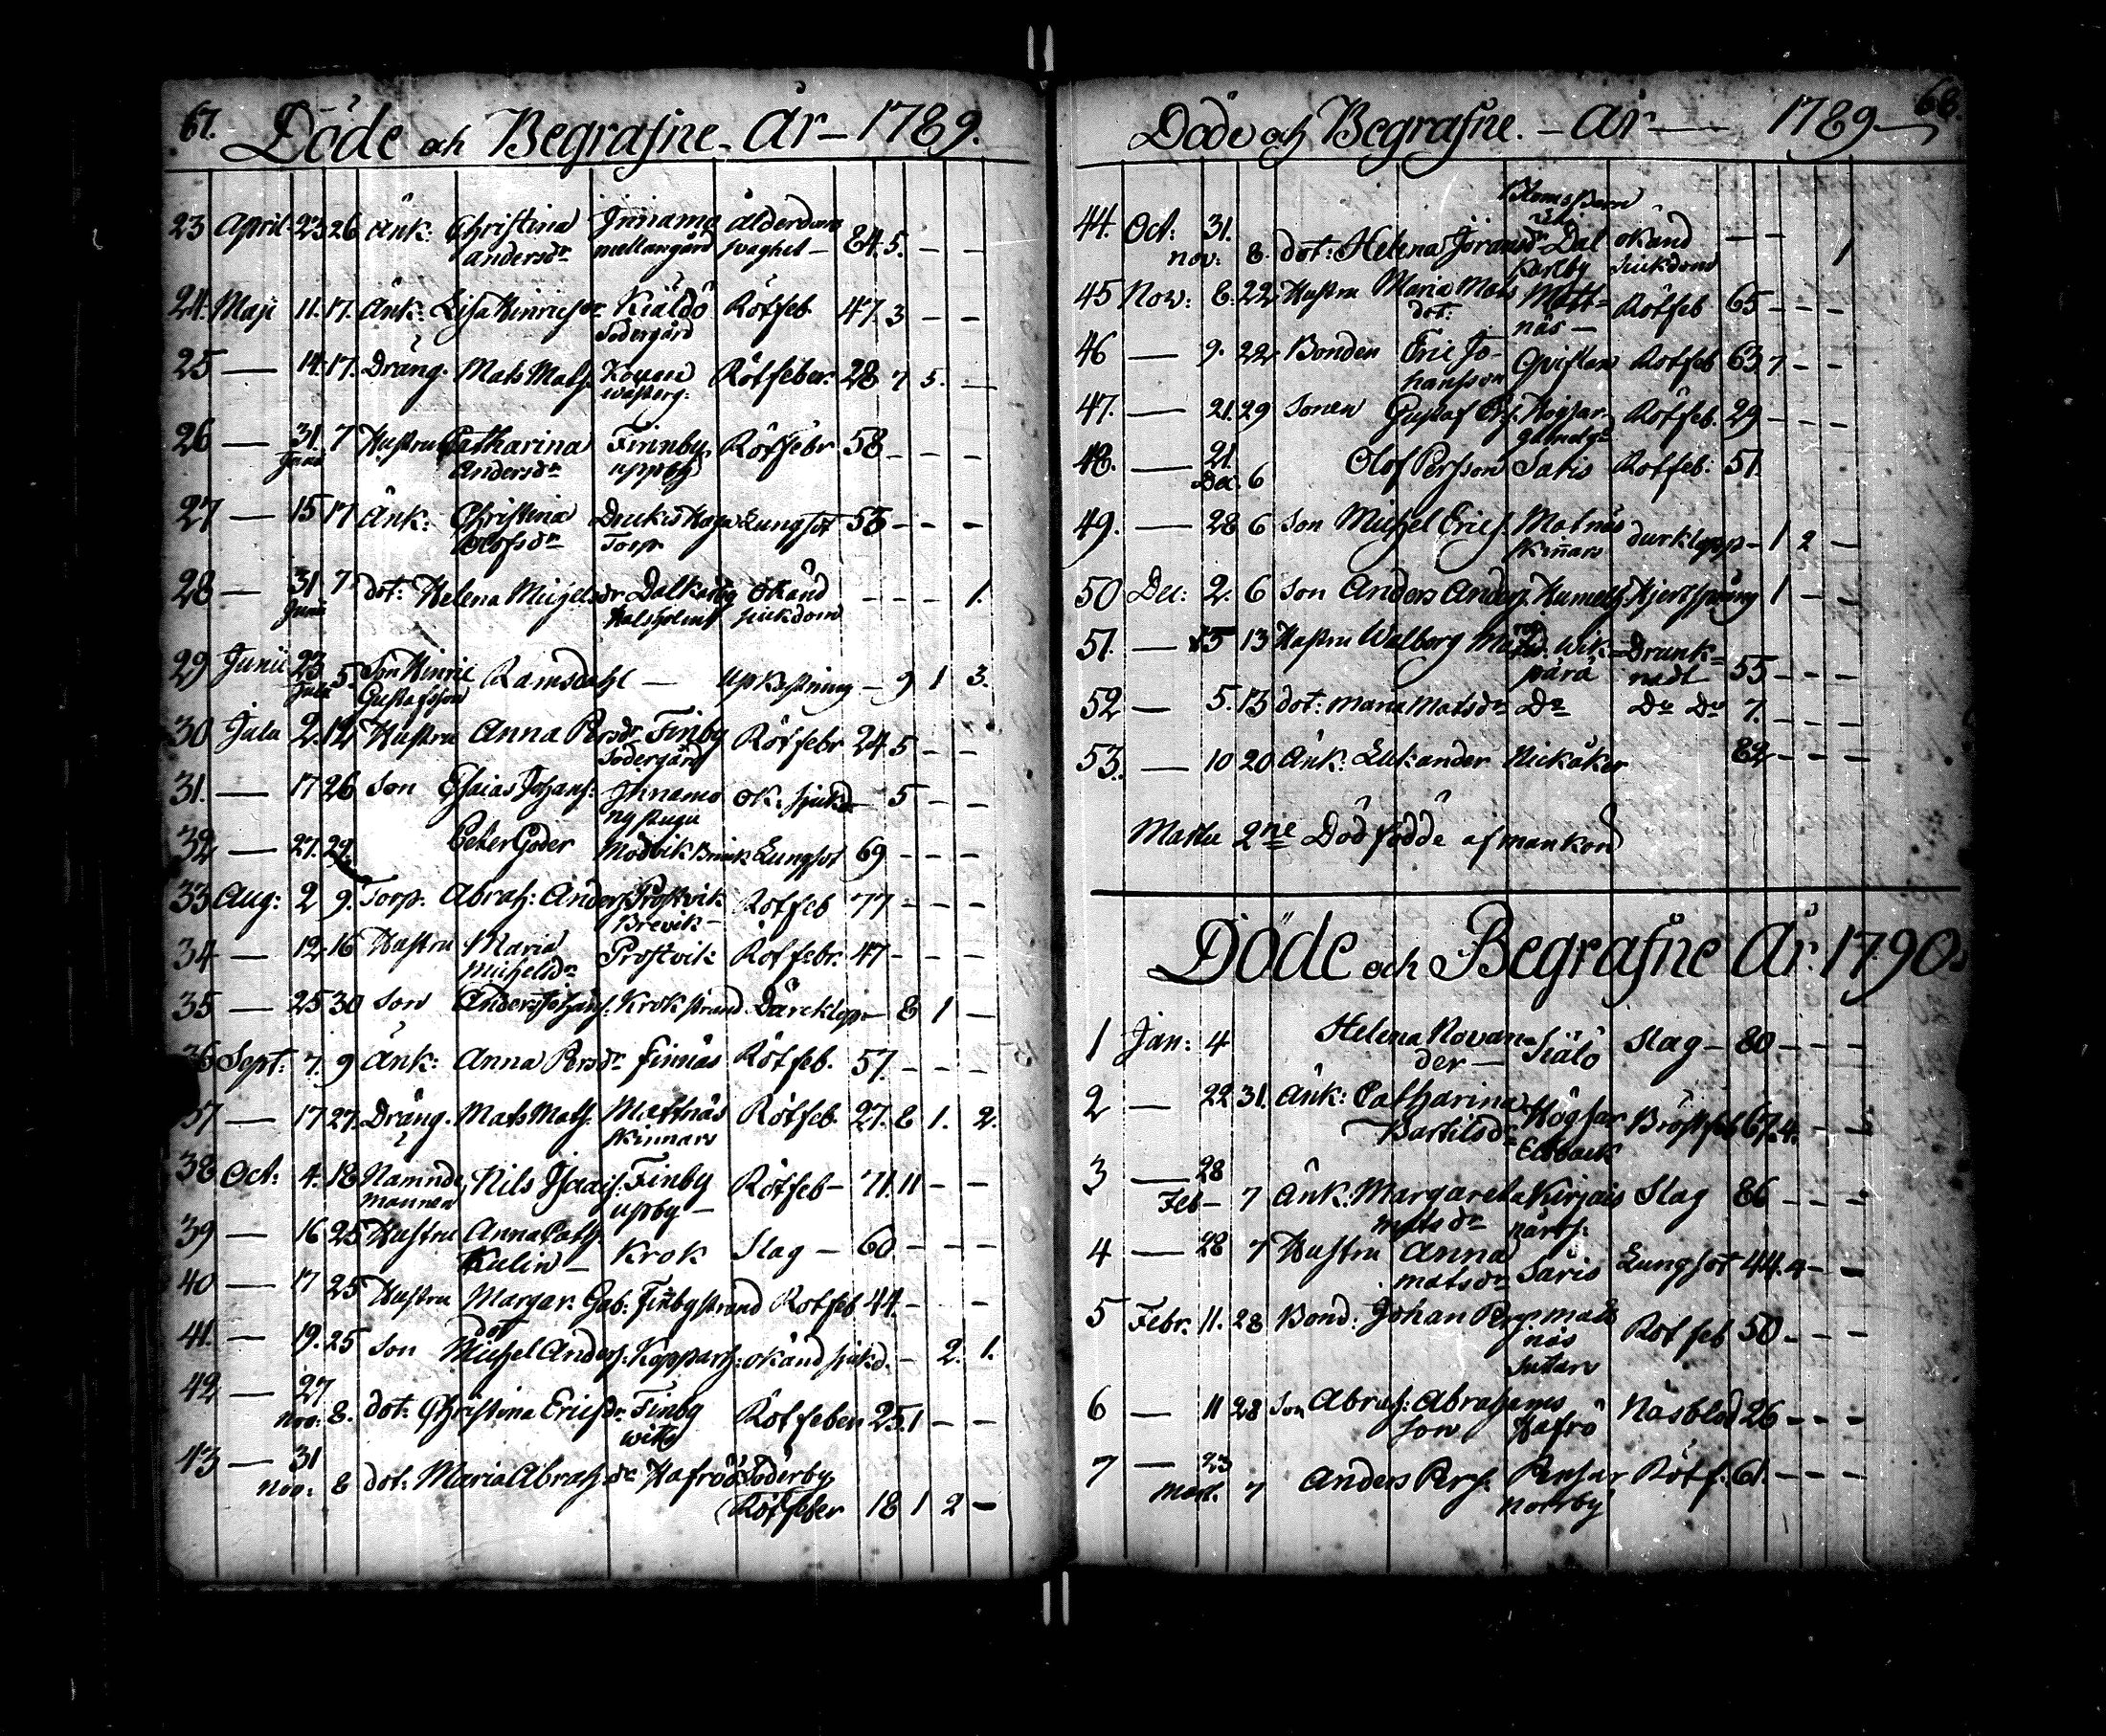 67. Döde och Begrafne. År - 1789.
23 April 23 26 Änk: Christina Innamo Ålderdoms
Andersdr mellangård swaghet - 84. 5. - -
24. Maji 11. 17. Änk: Lisa Hinricsdr Kiäldö Rötfeb. 47. 3 - -
Södergård
25 - 14. 17. Dräng. Mats Mats. Rötfeber. 28 7 5. -
26 - 31. 7 Hustru Catharina Finnby Rötfebr 58 - - -
Junii Andersdr uppby
27 - 15 17 Änk: Christina Lungsot 53 - - -
Olofsdr Torp
28 - 31. 7. dot: Helena Michelsdr Dalkarby Okänd - - - 1.
Junii siukdom
29 Junii 23 5 Son Hinric Ramsdahl - upkastning - 9 1 3.
Julii Gustafsson
30 Julii 2. 12 Hustru Anna Persdr Finby Rötfebr 24. 5 - -
Södergård
31. - 17 26 Son Esaias Johans: Innamo ok: siukd - 5 - -
nystugu
32 - 27. 29. Peter Göder Modvik Brink Lungsot 69 - - -
33 Aug: 2 9. Torp. Abrah: Anders. Prostvik Rötfeb 77 - - -
Brevik -
34 - 12. 16 Hustru Maria Prostvik Rötfebr. 47 - - -
Michelsdr
35 - 25 30 Son Anders Johans. Krok strand - 8 1 -
36 Sept: 7. 9 Änk: Anna Persdr Finnäs Rötfeb. 57. - - -
37 - 17 27. Dräng. Mats Mats. Mattnäs Rötfeb. 27. 8 1. 2.
Kinnars
38 Oct: 4. 18 Nämnde Nils Isacs. Finby Rötfeb - 71. 11 - -
mannen upby -
39 - 16 25 Hustru Anna Cath
Kulin - Krok Slag - 60 - - -
40 - 17 25 Hustru Margar: Gab: Finby strand Rötfeb 44. - - -
dot
41. - 19. 25 Son Michel Anders. okänd siukd. - 2. 1.
42 - 27
Nov: 8. dot: Christina Ericsdr Finby Rötfeber 25. 1 - -
43 - 31
Nov: 8 dot: Maria Abrahsdr Hafrö Söderby
Rötfeber 18 1 2 -
68.
Döde och Begrafne. - År - 1789
44. Oct: 31. okänd - -
nov: 8. dot: Helena Joransdr Dal siukdom 1
Karlby
45 Nov: 8. 22 Hustru Maria Mats Matt= Rötfeb 65 - - -
dot: näs -
46 - 9. 22 Bonden Eric Jo- Rötfeb 63. 7 - -
hansson
47. - 21. 29 Sonen Gustaf Högsar Rötfeb. 29 - - -
48. - 21. Olof Persson Saris Rötfeb. 51.
Dec. 6
49. - 28 6 Son Michel Erics. Matnäs durklopp - 1 2 -
Kinnars
50 Dec: 2. 6 Son Anders Anders. 1 - -
51. - 5 13 Hustru Walborg Wik= Drunk=
pärä nadt 55 - - -
52 - 5. 13 dot: Maria Matsdr Do Do Do 7. - - -
53. - 10 20 Änk: Lukander Nickåker 82 - - -
2ne Död födde af mankön
Döde och Begrafne År 1790.
1 Jan: 4 Helena Novan= Siälö Slag - 80 - - -
der -
2 - 22 31. Änk: Catharina Högsar Bröstfeb 67. 4. - -
Bartilsdr
3 - 28
Feb - 7 Änk: Margareta Kirjais Slag 86 - - -
matsdr
4 - 28 7 Hustru Anna Saris Lungsot 44. 4 - -
matsdr
5 Febr. 11. 28 Bond: Johan Pers. mat Rötfeb 50 - - -
näs
6 - 11 28 Son Abrah: Abrahams Näsblod 26 - - -
son Hafrö
7 - 23 Anders Pers. Pensar Rötf. 61. - - -
Mart. 7 norrby